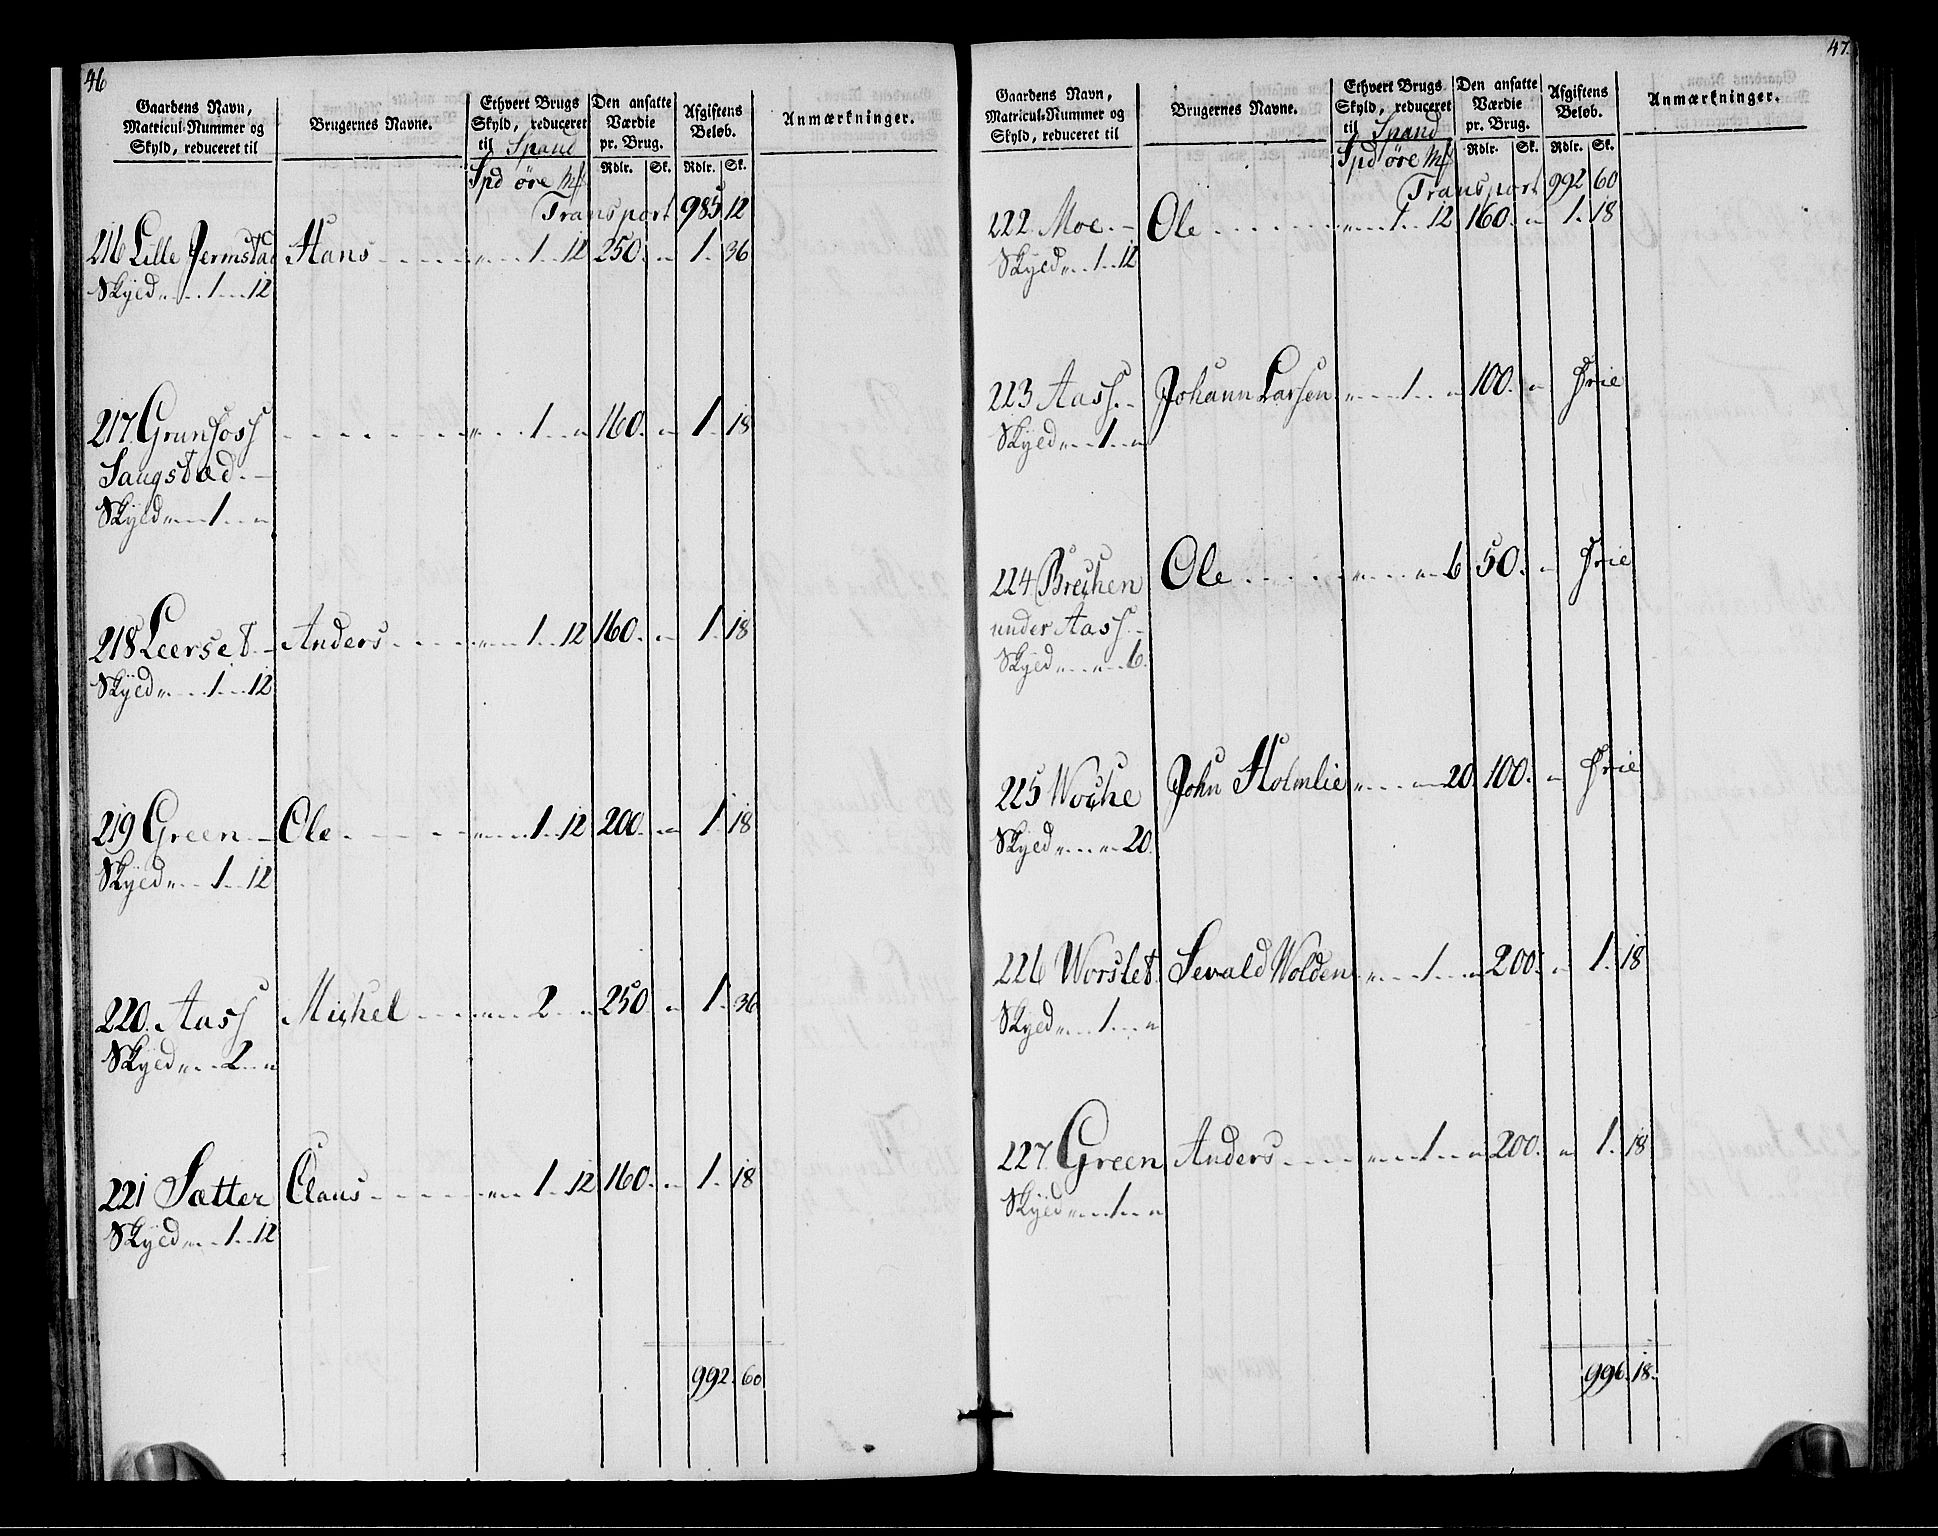 46
Gaardens Navn, Matricul-Nummer og Skyld, reduceret til
Brugernes Navne.
Ethvert Brugs Skyld, reduceret til Spand
Den ansatte Værdie pr. Brug.
Afgiftens Beløb.
Anmærkninger.
Spd øre Mk Rdlr. Sk. Rdlr. Sk.
Transport 985 12
216 Lille Jermstad Hans . . . . . „ . . 1 . . 12 250 . „ 1 . 36
Skyld „ . . 1 . . 12
217. Grunfoss . . . . . . . „ . . 1 . . „ 160. „ 1. 18
Saugstad. –
Skyld „ . . 1 . . „
218 Leerset . – Anders . . . . „ . . 1 . . 12 160. „ 1. 18
Skyld „ . . 1 . . 12
219 Green – Ole . . . . . „ . . 1 . . 12 200. „ 1. 18
Skyld „ . . 1 . . 12
220. Aass Michel . . . . „ . . 2 . . „ 250 „ 1. 36
Skyld „ . . 2 . . „
221 Sætter Claus . . . . . „ . . 1 . . 12 160. „ 1. 18
Skyld „ . . 1 . . 12
992. 60
47.
Gaardens Navn, Matricul-Nummer og Skyld, reduceret til
Brugernes Navne.
Ethvert Brugs Skyld, reduceret til Spand
Den ansatte Værdie pr. Brug.
Afgiftens Beløb.
Anmærkninger.
Spd øre Mk Rdlr. Sk. Rdlr. Sk.
Transport 992 60
222 Moe. – Ole . . . . . . „ . . 1 . . 12 160. „ 1. 18
Skyld „ . . 1 . . 12
223 Aass. – Johann Larsen „ . . 1 . . „ 100. „ Frie
Skyld „ . . 1 . . „
224 Brechen Ole . . . . . „ . . „ 6 50. „ Frie
under Aass. –
Skyld „ . . „ . . 6.
225 Woche John Holmlie „ . . „ 20. 100. „ Frie
Skyld „ . . „ 20.
226 Worslet Sevald Wolden „ . . 1 . . „ 200. „ 1. 18
Skyld „ . . 1 . . „
227 Green Anders . . . . „ . . 1 . . „ 200. „ 1. 18
Skyld „ . . 1 . . „
996. 18.